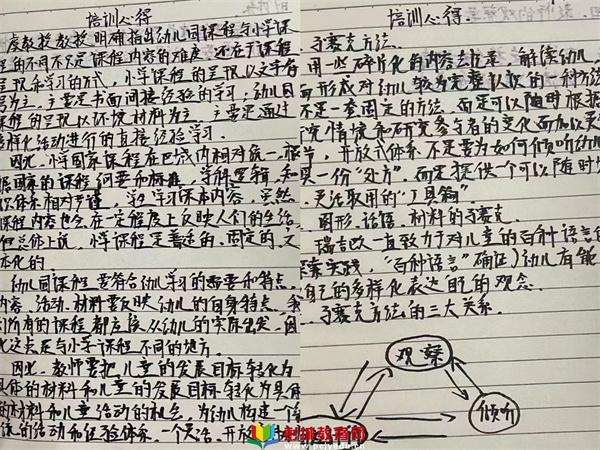 培训心得
虞教授教授明确指出幼儿园课程与小学课
程的不同不只是课程内容的难度,还在于课程
呈现和学习的方式,小学课程的呈现以文字符
号为主,主要是书面间接经验的学习,幼儿园
课程的呈现以环境材料为主,主要是通过
多样化活动进行的直接经验学习。
因此,小学国家课程在区域内相对统一,根
据国家的课程纲要和标准,学科逻辑和
知识体系相对严谨,学生学习课本内容,虽然
课程内容也会在一定程度上反映人们的生活
但总体上说,小学课程是普适的、固定的、文
本化的
幼儿园课程要符合幼儿学习的需要和特点,
内容、活动、材料要反映幼儿的自身特点,我
们所有的课程都应该从幼儿的实际出发,因
此这点是与小学课程不同的地方。
因此,教师要把儿童的发展目标转化为
具体的材料和儿童的发展目标转化为具体
的材料和儿童活动的机会,为幼儿构建一个
系统的活动和经验体系,一个灵活、开放
培训心得.
马赛克方法.
用一些碎片化的内容去拼凑、解读幼儿,
而形成对幼儿较为完整认识的一种方法
不是一套固定的方法,而是可以随时根据
究情境和研究参与者的变化而加以
节,开放式体系,不是要为如何倾听幼儿
具一份“处方”,而是提供一个可以随时
灵活取用的“工具箱”.
图形、话语、材料的马赛克.
瑞吉欧一直致力于对儿童的百种语言的
探索实践,“百种语言”确证幼儿有能
自己的多样化表达自己的观念.
马赛克方法的三大关系.
观察
倾听
蒲城教育网
www.pcjy.cn